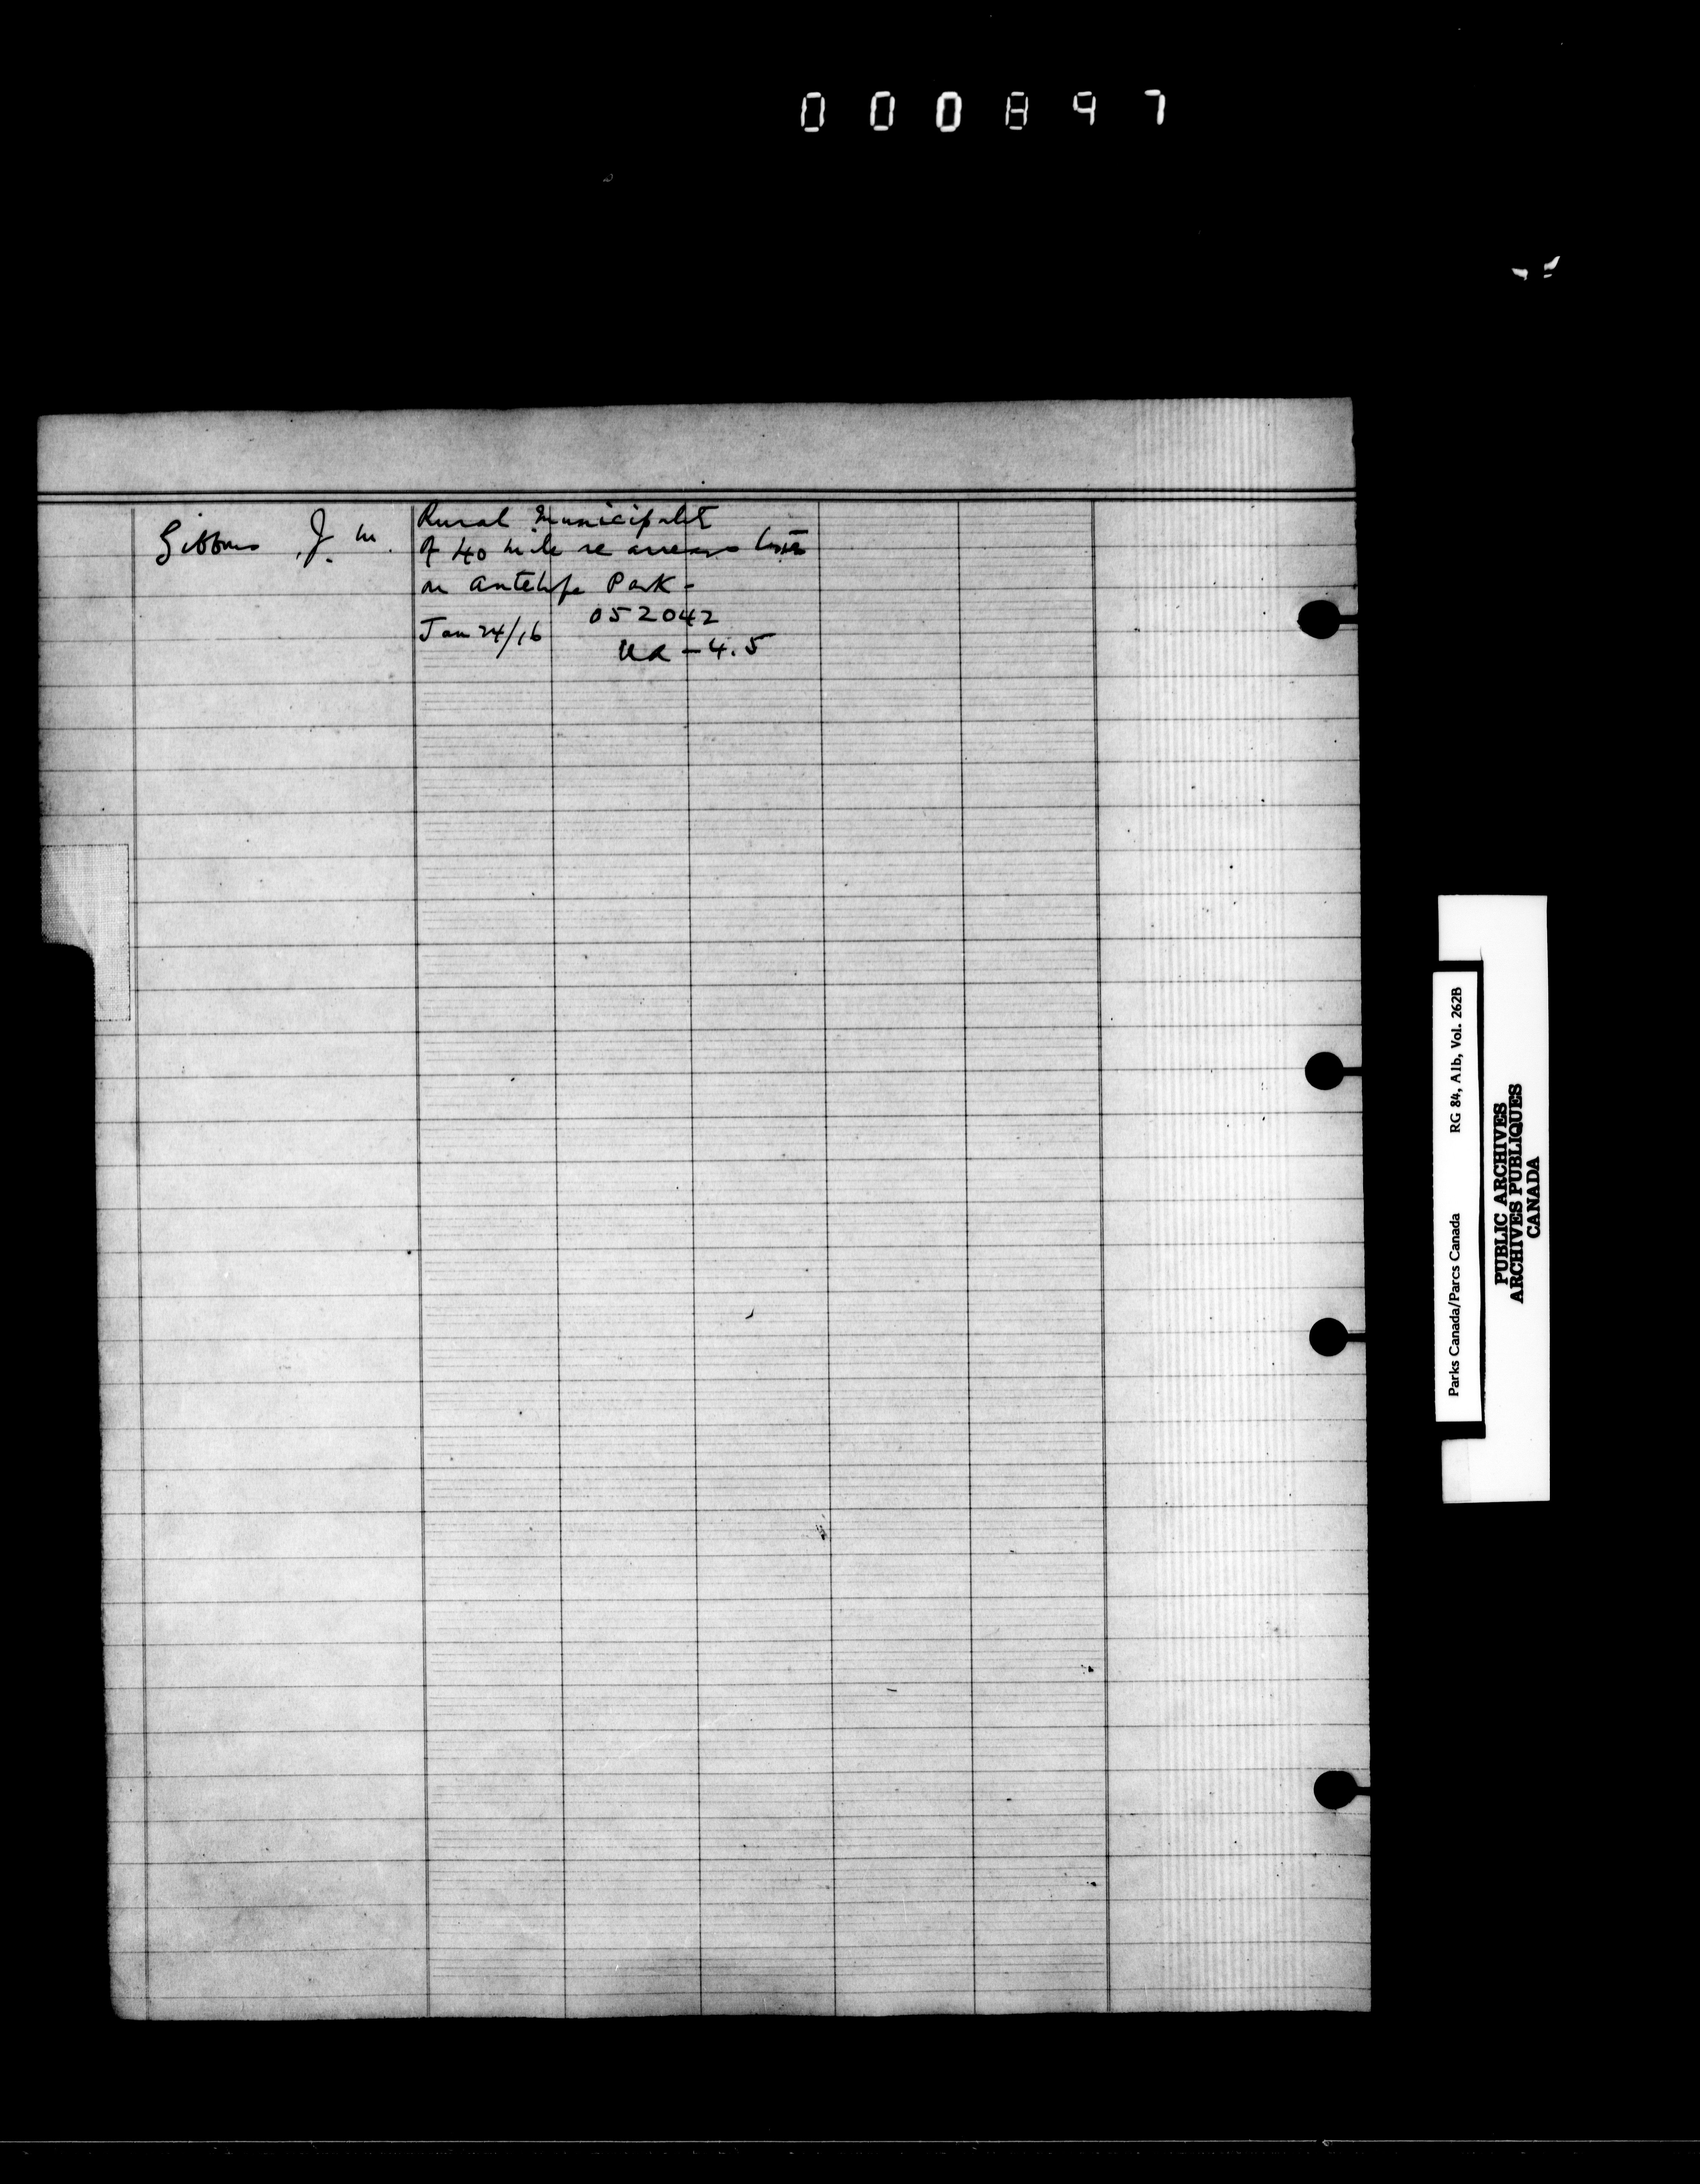 000897
Gibbons J. M.
Rural Municipality
of 40 Mile re arrears
on Antelope Park -
Jan 24/16 052042
Ua - 4.5
Parks Canada/Parcs Canada RG 84, A1b, Vol. 262B
PUBLIC ARCHIVES
ARCHIVES PUBLIQUES
CANADA